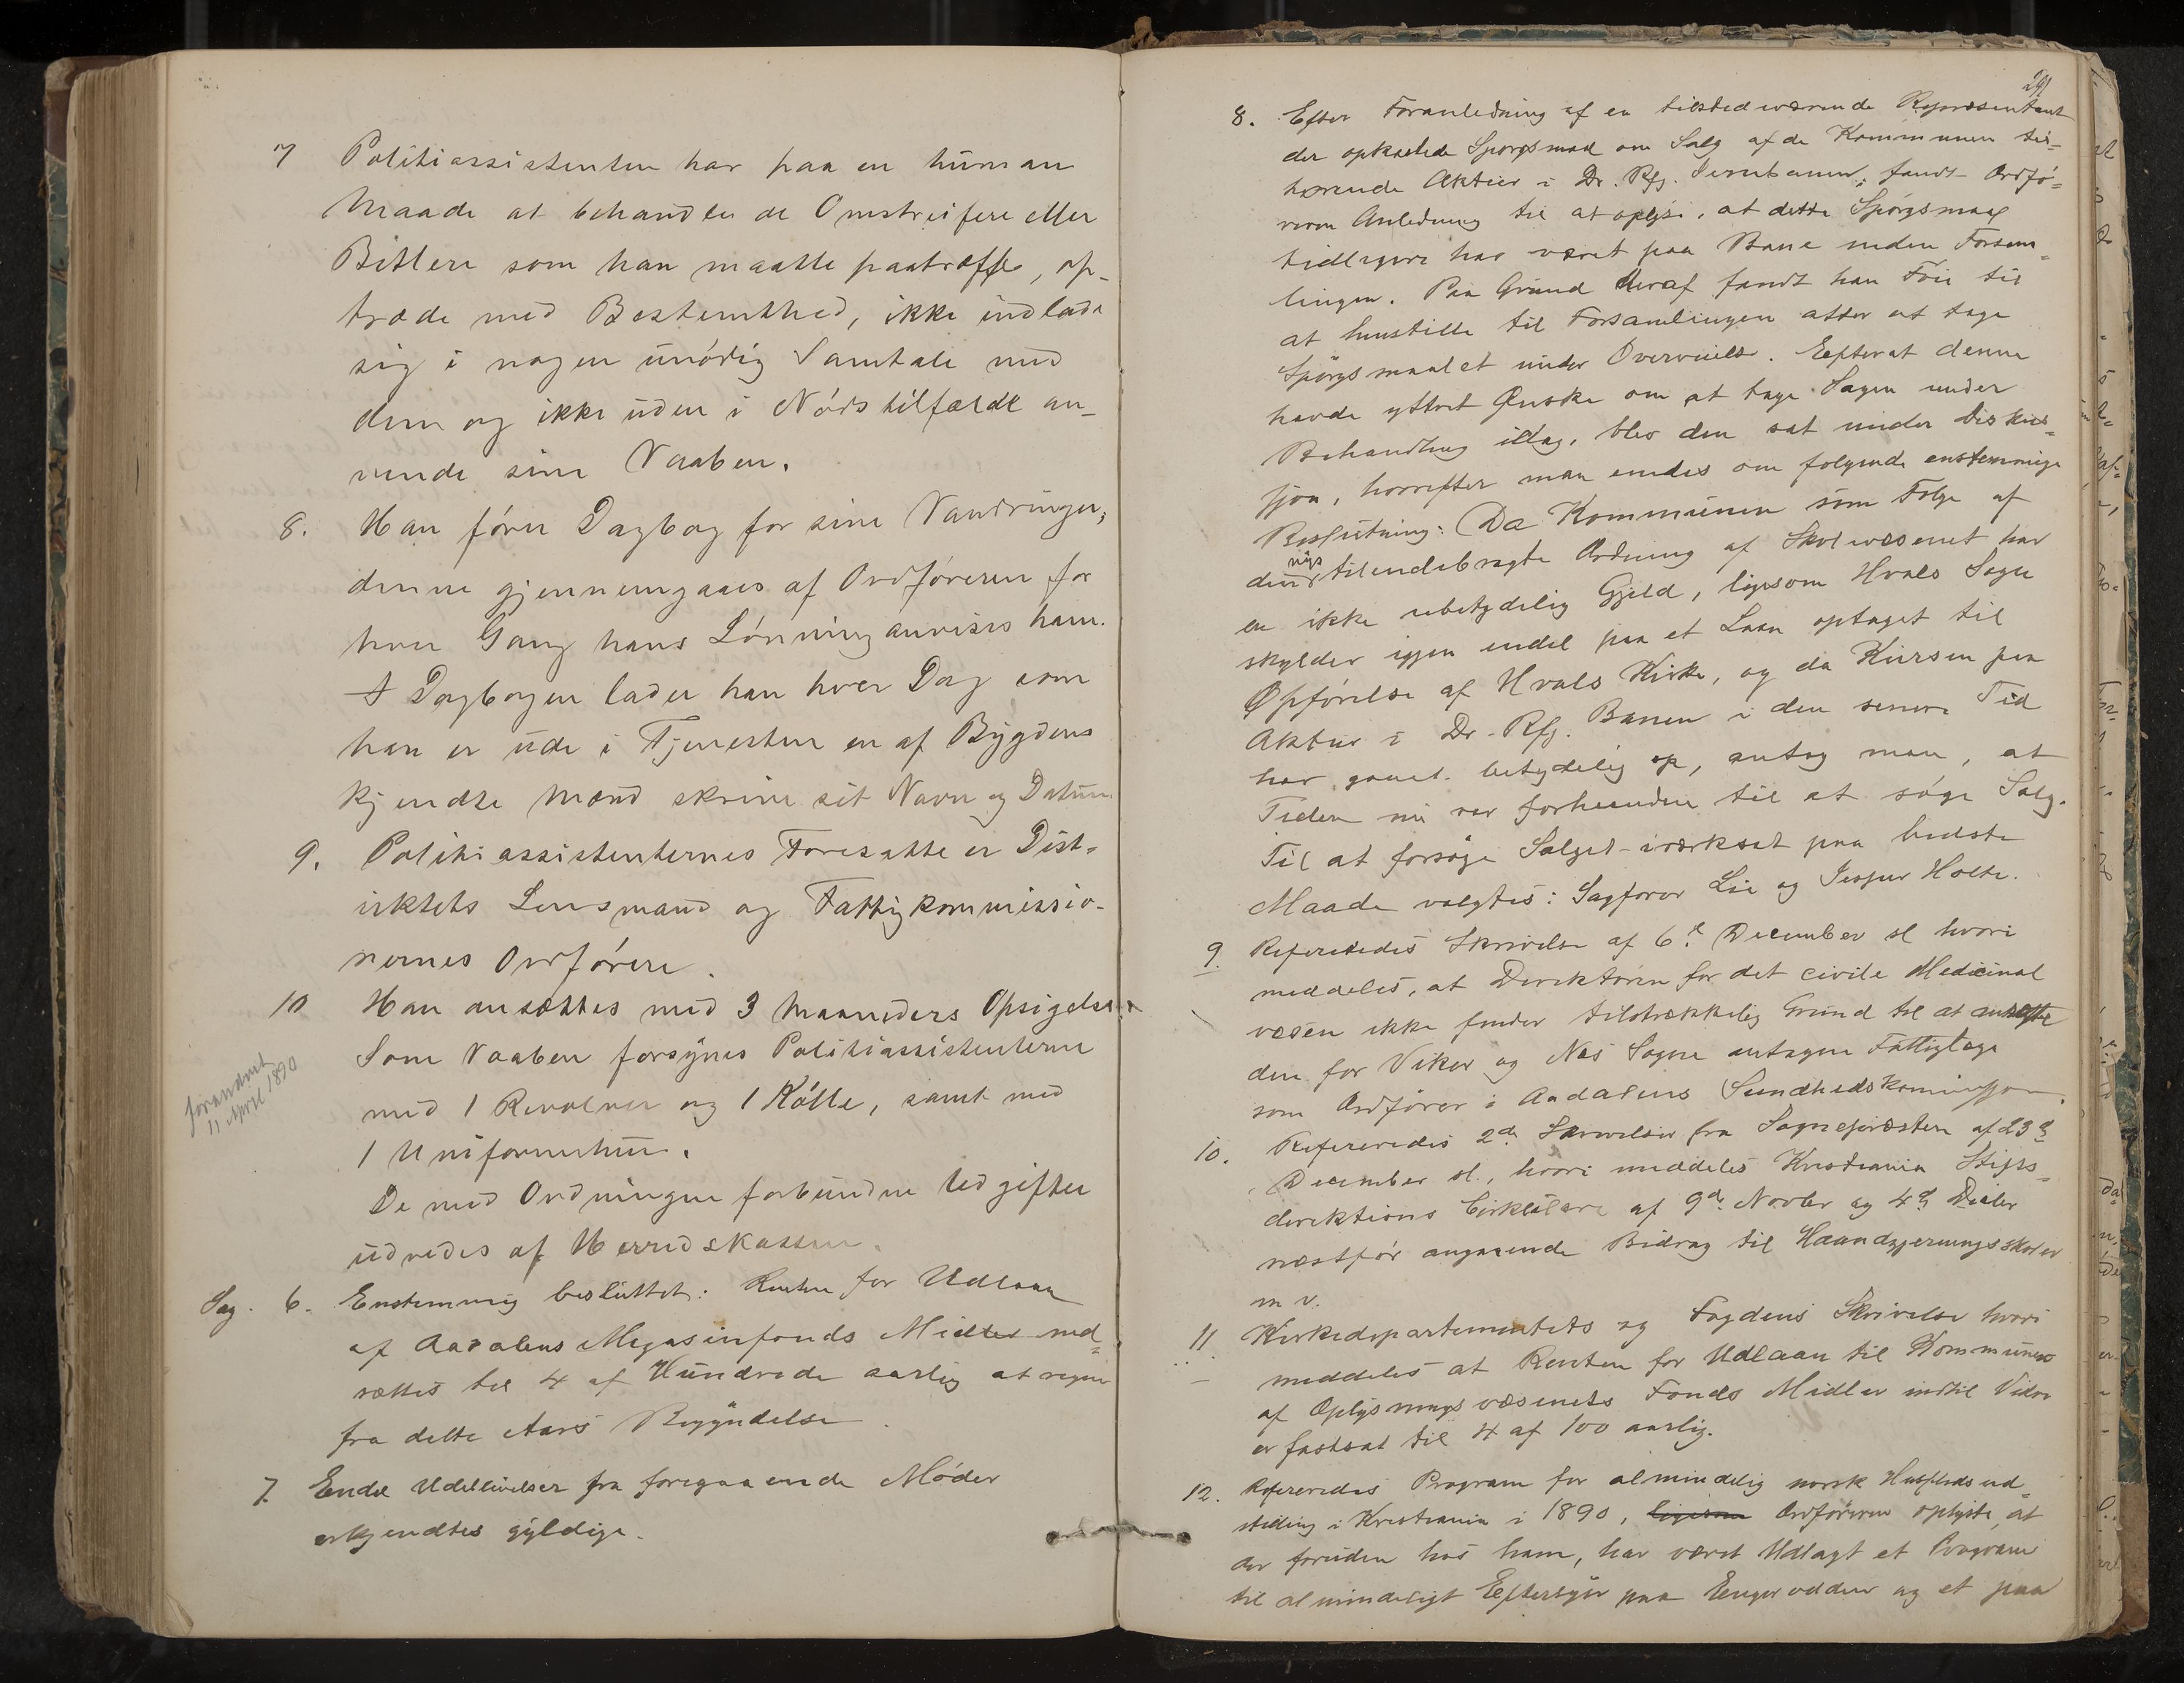 7 Politiassistenten har paa en human
Maade at behandler de Omstreifere eller
Betlere som han maatte paatræffe, op-
træde med Bestemthed, ikke indlade
sig i nogen unödig Samtale med
dem og ikke uden i Nödstilfælde an-
vende sine Vaaben.
8. Han förer Dagbog for sine Vandringer,
denne gjennemgaaes af Ordföreren for
hver Gang hans Lönning anvises ham.
I Dagbogen lader han hver Dag som
han er ude i Tjenesten en af Bygdens
kjendte Mænd skrive sit Navn og Datum.
9. Politiassistenternes Foresatte er Dist-
riktets Lensmand og Fattigkommissio-
nernes Ordförere.
10 Han ansættes med 3 Maaneders Opsigelse.
Som Vaaben forsynes Politiassistenterne
forandret
11 April 1890
med 1 Revolver og 1 Kölle, samt med
1 Uniformshue.
De med Ordningen forbundne Udgifter
udredes af Herredskassen.
Sag. 6. Enstemmig besluttet: Renten for Udlaan
af Aadalens Magasinfonds Midler ned=
sættes til 4 af Hundrede aarlig at regne
fra dette Aars Begyndelse.
7. Endel Udeblivelser fra foregaaende Möder
erkjendtes gyldige.
291
8. Efter Foranledning af en tilstedeværende Repræsentant
der opkastede Spörgsmaal om Salg af de Kommunen til-
hørende Aktier i Dr. Rfj. Jernbanen, fandt Ordfö=
reren Anledning til at oplyse, at dette Spörgsmaal
tidligere har været paa Bane inden Forsam=
lingen. Paa Grund deraf fandt han Föie til
at henstille til Forsamlingen atter at tage
Spörgsmaalet under Overveielse. Efterat denne
havde yttret Ønske om at tage Sagen under
Behandling idag, blev den sat under Diskus=
sjon, hvorefter man enedes om følgende enstemmige
Beslutning: Da Kommunen som Følge af
den nys tilendebragte Ordning af Skolevæsenet har
en ikke ubetydelig Gjeld, ligesom Hvals Sogn
skylder igjen endel paa et Laan optaget til
Opförelse af Hvals Kirke, og da Kursen paa
Aktier i Dr. Rfj. Banen i den senere Tid
har gaaet betydelig op, antog man, at
Tiden nu var forhaanden til at söge Salg.
Til at forsöge Salget iværksat paa bedste
Maade valgtes: Sagförer Lie og Jesper Holte.
9. Refereredes Skrivelse af 6te December sl hvori
meddeles, at Direktören for det civile Medicinal
væsen ikke finder tilstrækkelig Grund til at ansætte
den for Viker og Næs Sogne antagne Fattiglæge
som Ordförer i Aadalens Sundhedskommission.
10. Refereredes 2de Skrivelser fra Sognepræsten af 23de
December sl., hvori meddeles Kristiania Stifts-
direktions Cirkulære af 9de Novbr og 4de Decbr
næstfør angaaende Bidrag til Haandgjerningsskoler
m v.
11. Kirkedepartementets og Fogdens Skrivelse hvori
meddeles at Renten for Udlaan til Kommuner
af Oplysningsvæsenets Fonds Midler indtil Videre
er fastsat til 4 af 100 aarlig.
12. Refereredes Program for almindelig norsk Husflids ud-
stilling i Kristiania i 1890, ligesom Ordföreren oplyste, at
der foruden hos ham, har været Udlagt et Program
til almindeligt Eftersyn paa Engerodden og et paa